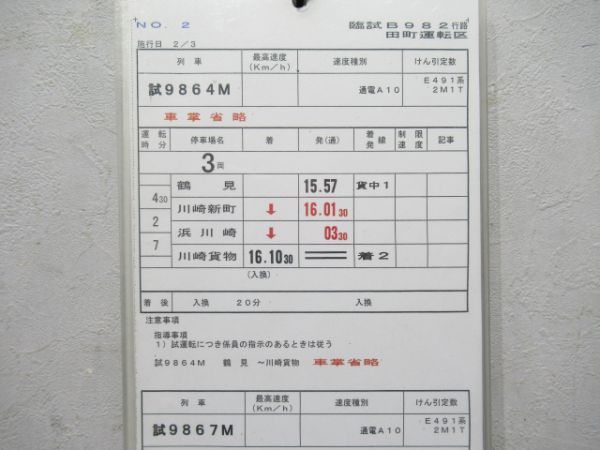 NO. 2 臨試B982行路
田町運転区
施行日 2/3
列車 最高速度(Km/h) 速度種別 けん引定数
試9864M 通電A10 E491系 2M1T
車掌省略
運転時分 停車場名 着 発(通) 着発線 制限速度 記事
3両
鶴見 15.57 貨中1
430
川崎新町 ↓ 16.0130
2
浜川崎 ↓ 0330
7
川崎貨物 16.1030 着2
(入換)
着後 入換 20分 入換
注意事項
指導事項
1)試運転につき係員の指示のあるときは従う
試9864M 鶴見 ~川崎貨物 車掌省略
列車 最高速度(Km/h) 速度種別 けん引定数
試9867M 通電A10 E491系 2M1T